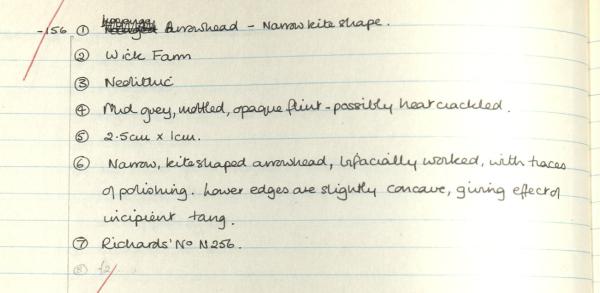 -156 ① Arrowhead - Narrow kite shape.
② Wick Farm
③ Neolithic
④ Mid grey, mottled, opaque flint - possibly heat crackled.
⑤ 2.5cm x 1cm.
⑥ Narrow, kite shaped arrowhead, bifacially worked, with traces
of polishing. Lower edges are slightly concave, giving effect of
incipient tang.
⑦ Richards' No N256.
⑧ f2